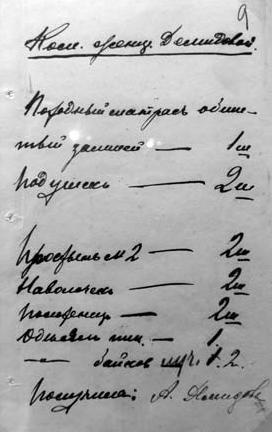 9
Комн. женщ. Демидовой.
Походный матрасъ обши-
тый замшей — 1 ш
Подушекъ — 2 ш
Простынь 2 — 2 ш
Наволочекъ — 2 ш
Полотенец — 2 ш
Одеялъ — 1.
—"— байков 2.
Получила: А. Демидова